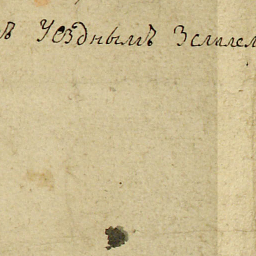 ъ Уезднымъ Землем